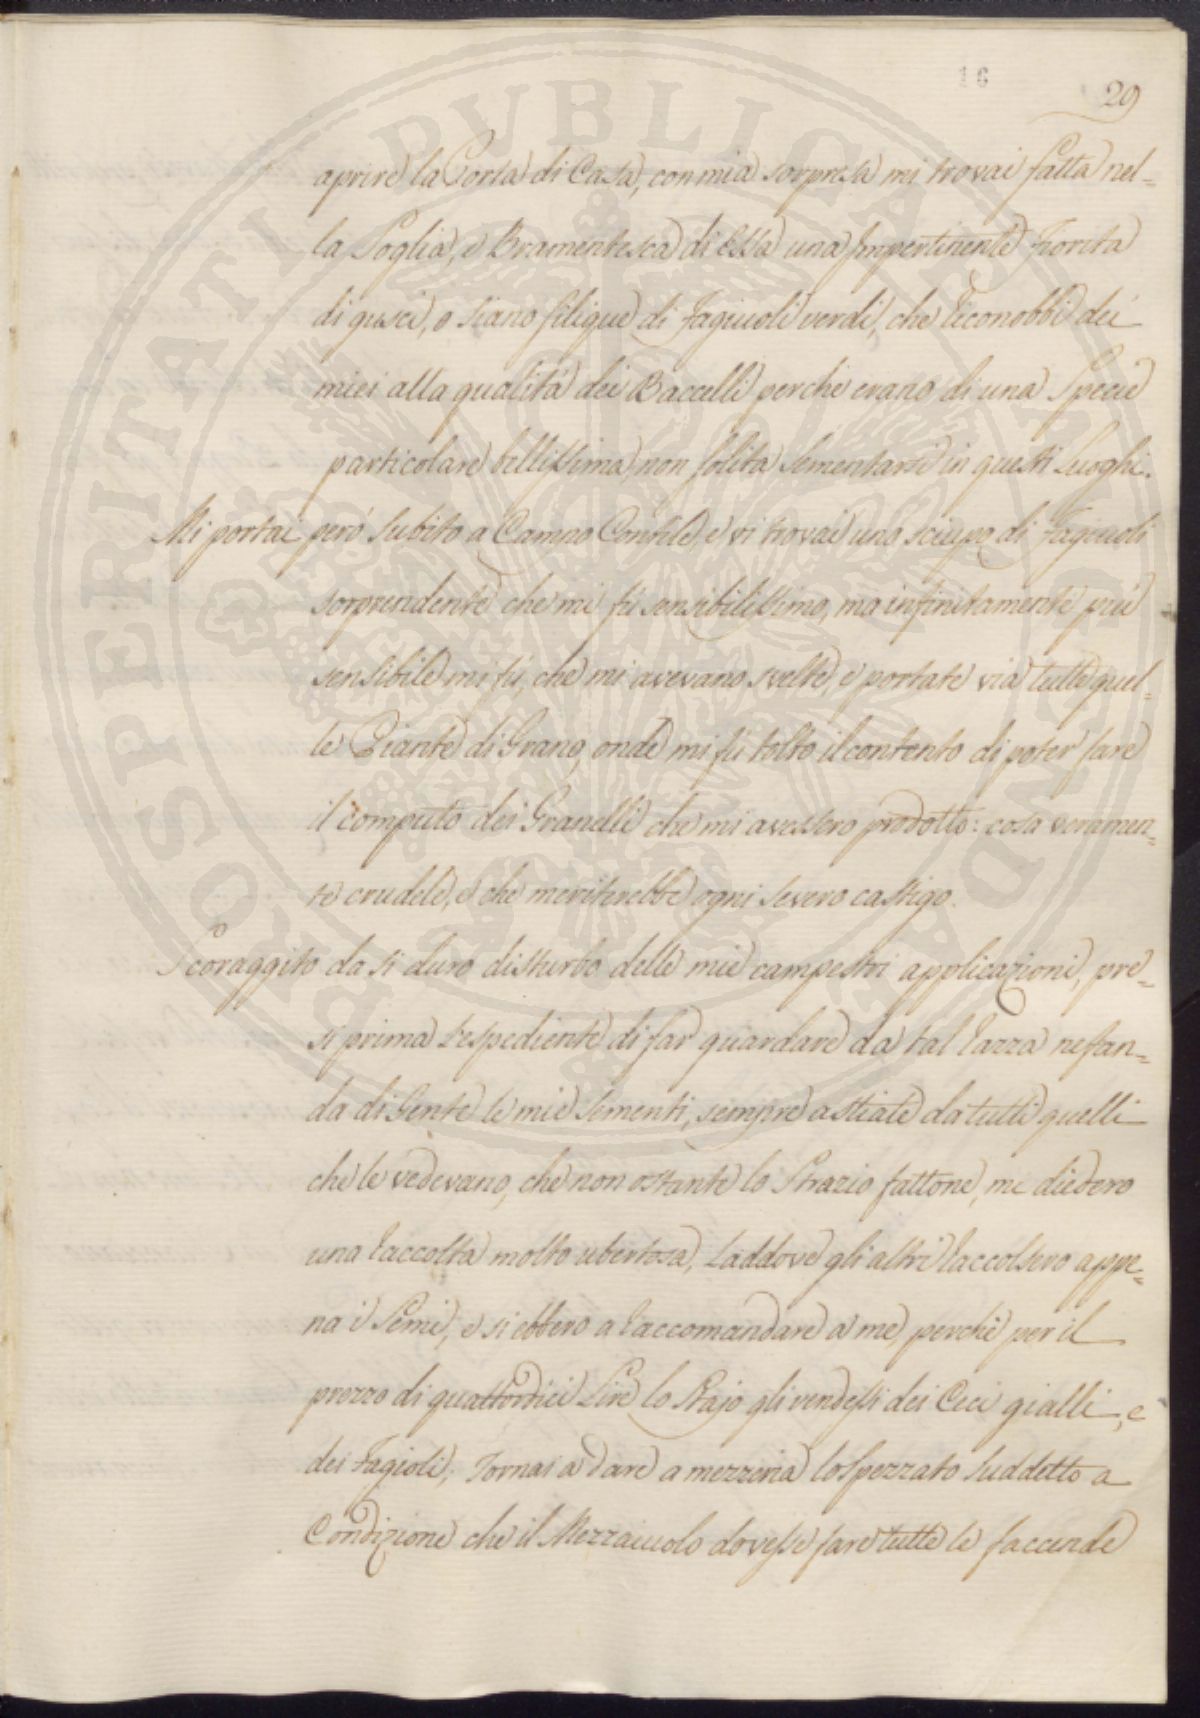 16
29
aprire la Porta di Casa, con mia sorpresa mi trovai fatta nel=
la Soglia, e Bramentesca di Essa una Impertinente Fiorita
di gusci, o siano silique di Fagiuoli verdi, che riconobbi dei
miei alla qualitá dei Baccelli perche erano di una Specie
particolare bellissima, non solita Sementarsi in questi Luoghi.
Mi portai peró Subito a Campo Contile, e vi trovai uno sciupo di Fagiuoli
sorprendente che mi fú sensibilissimo, ma infinitamente piú
sensibile mi fú, che mi avevano svelte, e portate via tutte quel=
le Piante di Grano, onde mi fú tolto il contento di poter fare
il computo dei Granelli che mi avessero prodotto: cosa veramen=
te crudele, e che meriterebbe ogni severo castigo.
Scoraggito da si duro disturbo delle mie campestri applicazioni, pre=
si prima l'espediente di far guardare da tal razza nefan=
da di Gente le mie Sementi, sempre astiate da tutti quelli
che le vedevano, che non ostante lo Strazio fattone, me diedero
una raccolta molto ubertosa, Laddove gli altri raccolsero appe=
na i Semi, e si ebbero a raccomandare a me, perchè per il
prezzo di quattordici Lire lo Stajo gli vendessi dei Ceci gialli, e
dei Fagioli, Tornai a dare a mezzeria lo Spezzato Suddetto a
Condizione che il Mezzaiuolo dovesse fare tutte le faccende
PROSPERITATI PUBLICAE AUGENDAE